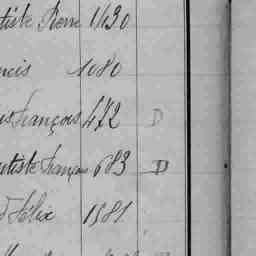 tiste Pierre 1430
ncis 1080
is françois 472 D
utiste françois 683 D
d Félix 1581